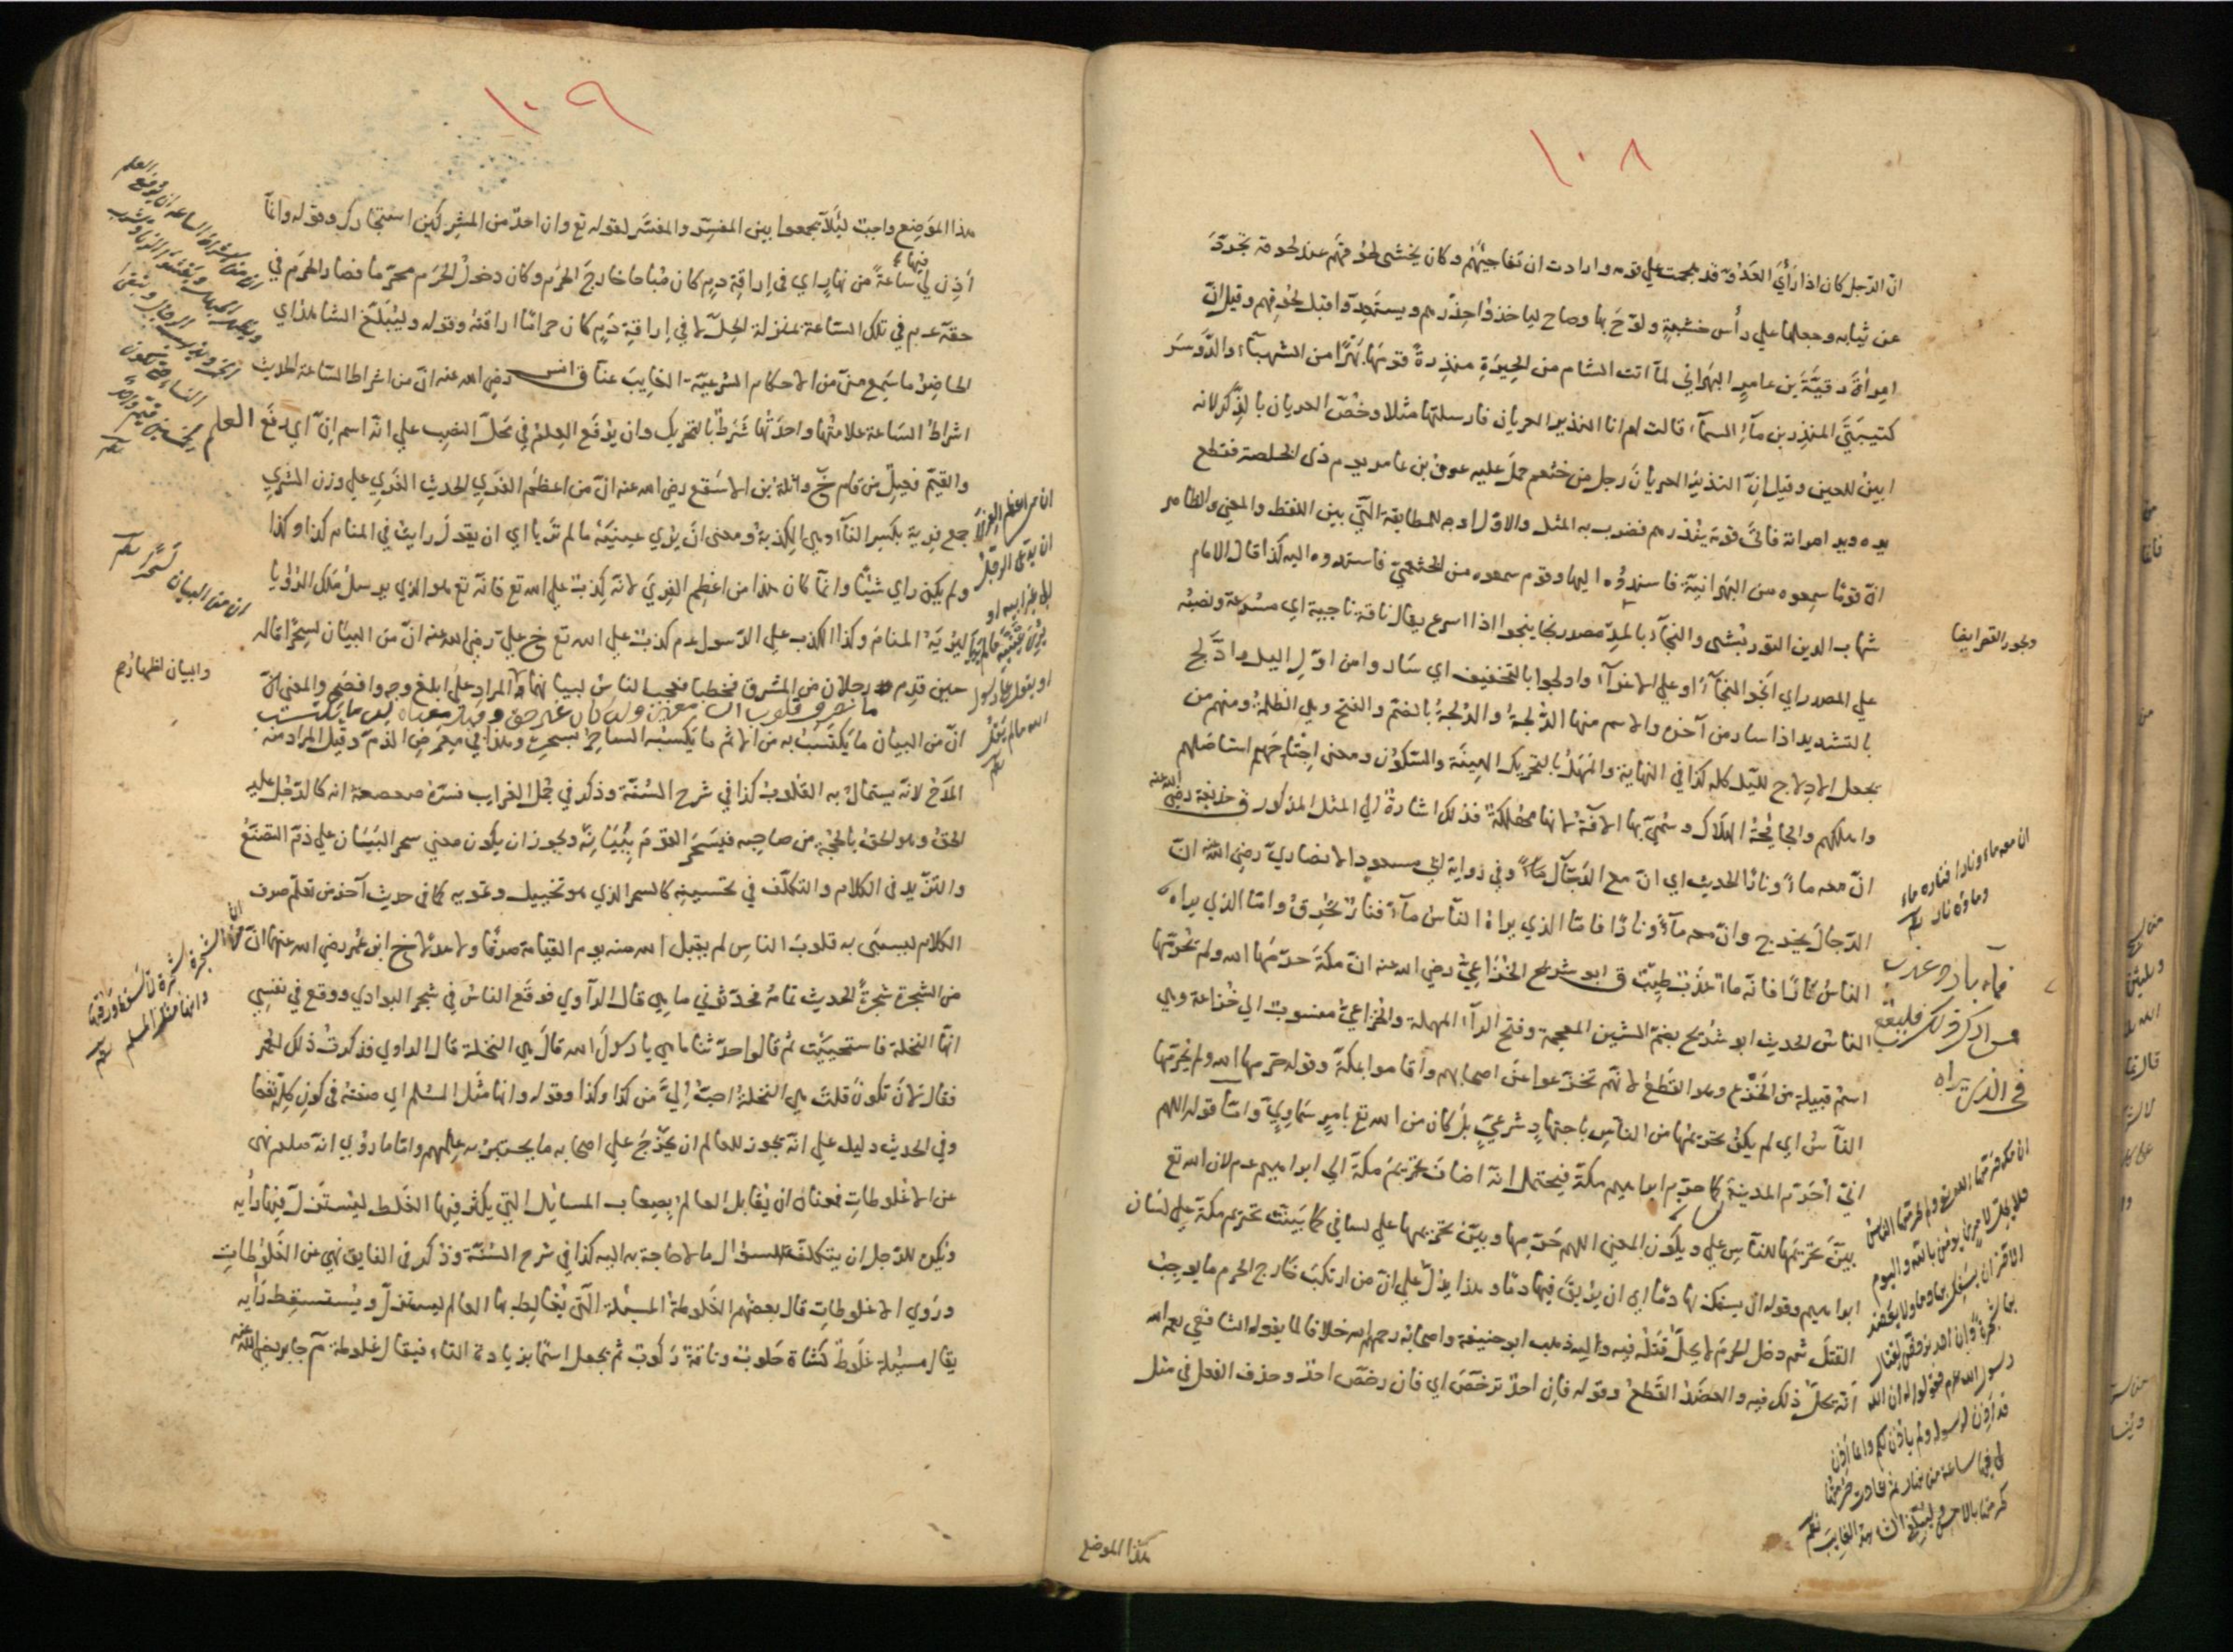 ١٠٨
انّ الرّجل كان اذا رأي العَدُوّ قد هجمت علي قومه وارادت ان تفاجيئهم وكان يخشي لحوقهم عند لحوقه تجرّد
عن ثيابه وجعلها علي رأس خشبةٍ ولوّح بها وصاح لياخذوا حِذْرهم ويستعدّوا قبل لحوقهم وقيل انّ
امرأة رقيّة بن عامرٍ البهراني لمّا اتت الشام من الحِيرَةِ منذِرةً قومها من الشهباء والدَّوسَر
كتيبتي المنذر بن مآء السمآء قالت لهم انا النذير العريان فارسلتها مثلا وخُصّ العريان بالذّكر لانه
ابين للعين وقيل انّ النذير العريان رجل من خثعم حمل عليه عوف بن عامر يوم ذى الخلصة فقطع
يده ويد امراته فاتي قومه ينذرهم فضرب به المثل والاوّل اوجه للمطابقة الّتي بين اللفظ والمعني والظاهر
انّ قومًا سمِعوه من البهرانيّة فاسندوه اليها وقوم سمعوه من الخثعميّ فاسندوه اليه كذا قال الامام
شهاب الدين التوربشتي والنجآء بالمدّ مصدر نجا ينجوا اذا اسرع يقال ناقة ناجية اي مسرعة ونصبُه
علي المصدر اي انجوا النجآء او علي الاغرآء وادلجوا بالتخفيف اي سَاروا من اوّل اليل وادّلج
بالتشديد اذا سار من آخره والاسم منها الدُّلجةُ والدَّلجةُ بالضمّ والفتح وهي الظلمةُ ومنهم من
يجعل الادلاج لليل كله كذا في النهاية والمَهَلُ بالتحريك الهِينَة والسّكون ومعني اجتاحهم استاصلهم
واهلكهم والجايحةُ الهلاك وسُمّي بها الآفة لانها مهلكة فذلك اشارة الي المثل المذكور ق حذيفة رضي الله عنه
انّ معه ماءً ونارًا الحديث اي انّ مع الدّجال ماءً وفي رواية ابي مسعودٍ الانصاريّ رضي الله عنه انّ
الدّجال يخرج وانّ معه مآءً ونارًا فامّا الذي يراه النّاس مآءً فنارٌ تُحْرِقُ وامّا الذي يراه
الناسُ نارًا فانّه ماءٌ عذْبٌ طيّبٌ ق ابو شريح الخُزاعِيّ رضي الله عنه انّ مكّة حرّمها الله ولم يحرّمها
الناسُ الحديث ابو شُرَيح بضمّ الشين المعجمة وفتح الرآء المهملة والخزاعيّ منسوب الي خُزاعة وهي
اسمُ قبيلة من الخَزْع وهو القَطعُ لانّهم تخزّعوا عن اصحابهم واقاموا بمكّة وقوله حرّمها الله ولم يحرّمها
النّاسُ اي لم يكن تحريمها من النّاس باجتهادٍ شرعيٍّ بل كان من الله تع بامرٍ سَماويٍّ وامّا قوله اللهم
انيّ احرّم المدينة كما حرّم ابراهيم مكّة فيحتمل انّه اضاف تحريم مكّة الي ابراهيم عم لان الله تع
بيّن تحريمها للنّاس علي لسانه ويكون المعني اللهم حرّمها وبيّن تحريمها علي لساني كما بَيّنت تحريم مكّة علي لسان
ابراهيم وقوله ان يسفك بها دمًا اي ان يريق فيها دمًا وهذا يدُلّ علي انّ من ارتكب خارج الحرم ما يوجبُ
القتل ثم دخل الحرم لا يحلّ قتله فيه واليه ذهب ابو حنيفة واصحابه رحمهم الله خلافا لما يقوله الشافعي رحمه الله
انّه يحلّ ذلك فيه والعضد القطعُ وقوله فان احدٌ ترخّصَ اي فان رخّصَ احدٌ وحذف الفعل في مثل
ويجوز القصر ايضا
ان معه ماء ونارا فناره ماء
وماؤه نار
فماء بارد عذب
فمن ادرك ذلك فليقع
في الذي يراه
ان مكة حرمها الله تع ولم يحرمها الناس
فلا يحل لامرئ يؤمن بالله واليوم
الاخر ان يسفك بها دما ولا يعضد
بها شجرة وان احد ترخص لقتال
رسول الله عم فقولوا له ان الله
قد اذن لرسوله ولم ياذن لكم وانما اذن
لي فيها ساعة من نهار ثم عادت حرمتها
كحرمتها بالامس وليبلغ الشاهد الغايب
هذا الموضع
١٠٩
هذا الموضع واجبٌ ليلّا يجمعوا بين المفسِّر والمفسَّر لقوله تع وان احدٌ من المشركين استجارك وقوله وانّما
اَذِن لي فيها ساعةً من نهارٍ اي في اراقة دمٍ كان مُباحا خارج الحرم وكان دخولُ الحرم محرّما فصار الحرم في
حقّه عم في تلك السّاعة بمنزلة الحلّ لا في اراقةِ دَمٍ كان حرامًا اراقته وقوله وليُبلّغ الشاهد اي
الحاضِرُ ما سَمِع منّي من الاحكام الشرعيّة الغايبَ عنّا ق انس رضي الله عنه انّ من اشراط السّاعة الحديث
اشراطُ السّاعة علامتُها واحدَتُها شَرَطٌ بالتحريك وان يُرْفع العِلمُ في محَلّ النصب علي انّه اسم انّ اي رفعَ العلم
والقيّم فيعلٌ من قام خ واثلة بن الاسقع رضي الله عنه انّ من اعظم الفِرَي الحديث الفِرَي علي وزن الشِري
جمع فِرية بكسر الفآء وهي الكِذبةُ ومعني ان يُري عينيَهْ ما لم تريا اي ان يقول رايتُ في المنام كذا وكذا
ولم يكن راي شيئًا وانّما كان هذا من اعظم الفِرَي لانّه كذبٌ علي الله تع فانّه تع هو الذي يرسلُ ملك الرؤيا
ليُريَهُ المنام وكذا الكذب علي الرّسول عم كذبٌ علي الله تع خ عليّ رضي الله عنه انّ من البيان لسِحرًا قاله
حين قدِم رجلان من المشرق فخطبا فعجب الناسُ لبيانهما المراد علي ابلغ وجهٍ وافصحِه والمعني انّ
انّ من البيان ما يُكتسَبُ به من الاثم ما يكسبه الساحرُ بسحره وهذا في معرض الذمّ وقيل المراد منه
المدْحُ لانّه يستمالُ به القلوبُ كذا في شرح السُنّة وذكر في مُجمل الغرايب فسّره صعصعة انه كالرّجُل عليه
الحقّ وهو الحنُ بالحجّة من صاحبه فيسحَر القوْمَ ببيانه ويجوز ان يكون معني سحر البيان علي ذمّ التصنّعُ
والتزّيد في الكلام والتكلّف في تحسينه كالسحر الذي هو تخييل وتمويه كما في حديث آخر من تعلّم صرف
الكلام ليسبي به قلوبَ الناس لم يقبل الله منه يوم القيامة صرفًا ولا عدلًا خ ابن عُمر رضي الله عنهما انّ
من الشجرة شجرةً الحديث تمامُه فحدّثوني ما هي قال الرّاوي فوقع الناسُ في شجر البوادي ووقع في نفسي
انّها النخلة فاستحييتُ ثم قالوا حدّثنا ما هي يا رسول الله قال هي النخلة قال الراوي فذكرتُ ذلك لعمر
فقال لان تكون قلتَ هي النخلة احبُّ اليّ من كذا وكذا وقوله وانها مثل المسلم اي صفته في كون كله نفعا
وفي الحديث دليل علي انّه يجوز للعالم ان يطرح علي اصحابه ما يختبر به علمهم وامّا ما رُوي انّه صلعم نهي
عن الاغلوطات فمعناه ان يُقابل العالمُ بصِعاب المسايل الّتي يكثر فيها الغلط ليُستزلّ فيها رأيُه
ويُكره للرّجل ان يتكلف لسؤال ما لا حاجة به اليه كذا في شرح السُنّة وذكر في الفايق نُهي عن الغَلُوطات
ورُوي الاغلوطات قال بعضهم الغلوطة المسئلة الّتي يُغالط بها العالم ليستزلّ ويُستسقط رَايه
يقال مسئلة غلوط كشاة حَلوب وناقة رَكوب ثم يجعل اسمًا بزيادة التاء فيقال غلوطة م جابر رضي الله عنه
ان من اشراط الساعة ان يرفع العلم
ويظهر الجهل ويفشو الزنا ويشرب
الخمر ويذهب الرجال وتبقي
النساء حتي يكون
لخمسين امراة قيم واحد
ان من اعظم الفري
ان يدعي الرجل
الي غير ابيه او
يري عينيه ما لم تريا
او يقول علي رسول
الله ما لم يقل
ان من البيان لسحرا
والبيان اظهار
ان من الشجرة شجرة لا يسقط ورقها
وانها مثل المسلم